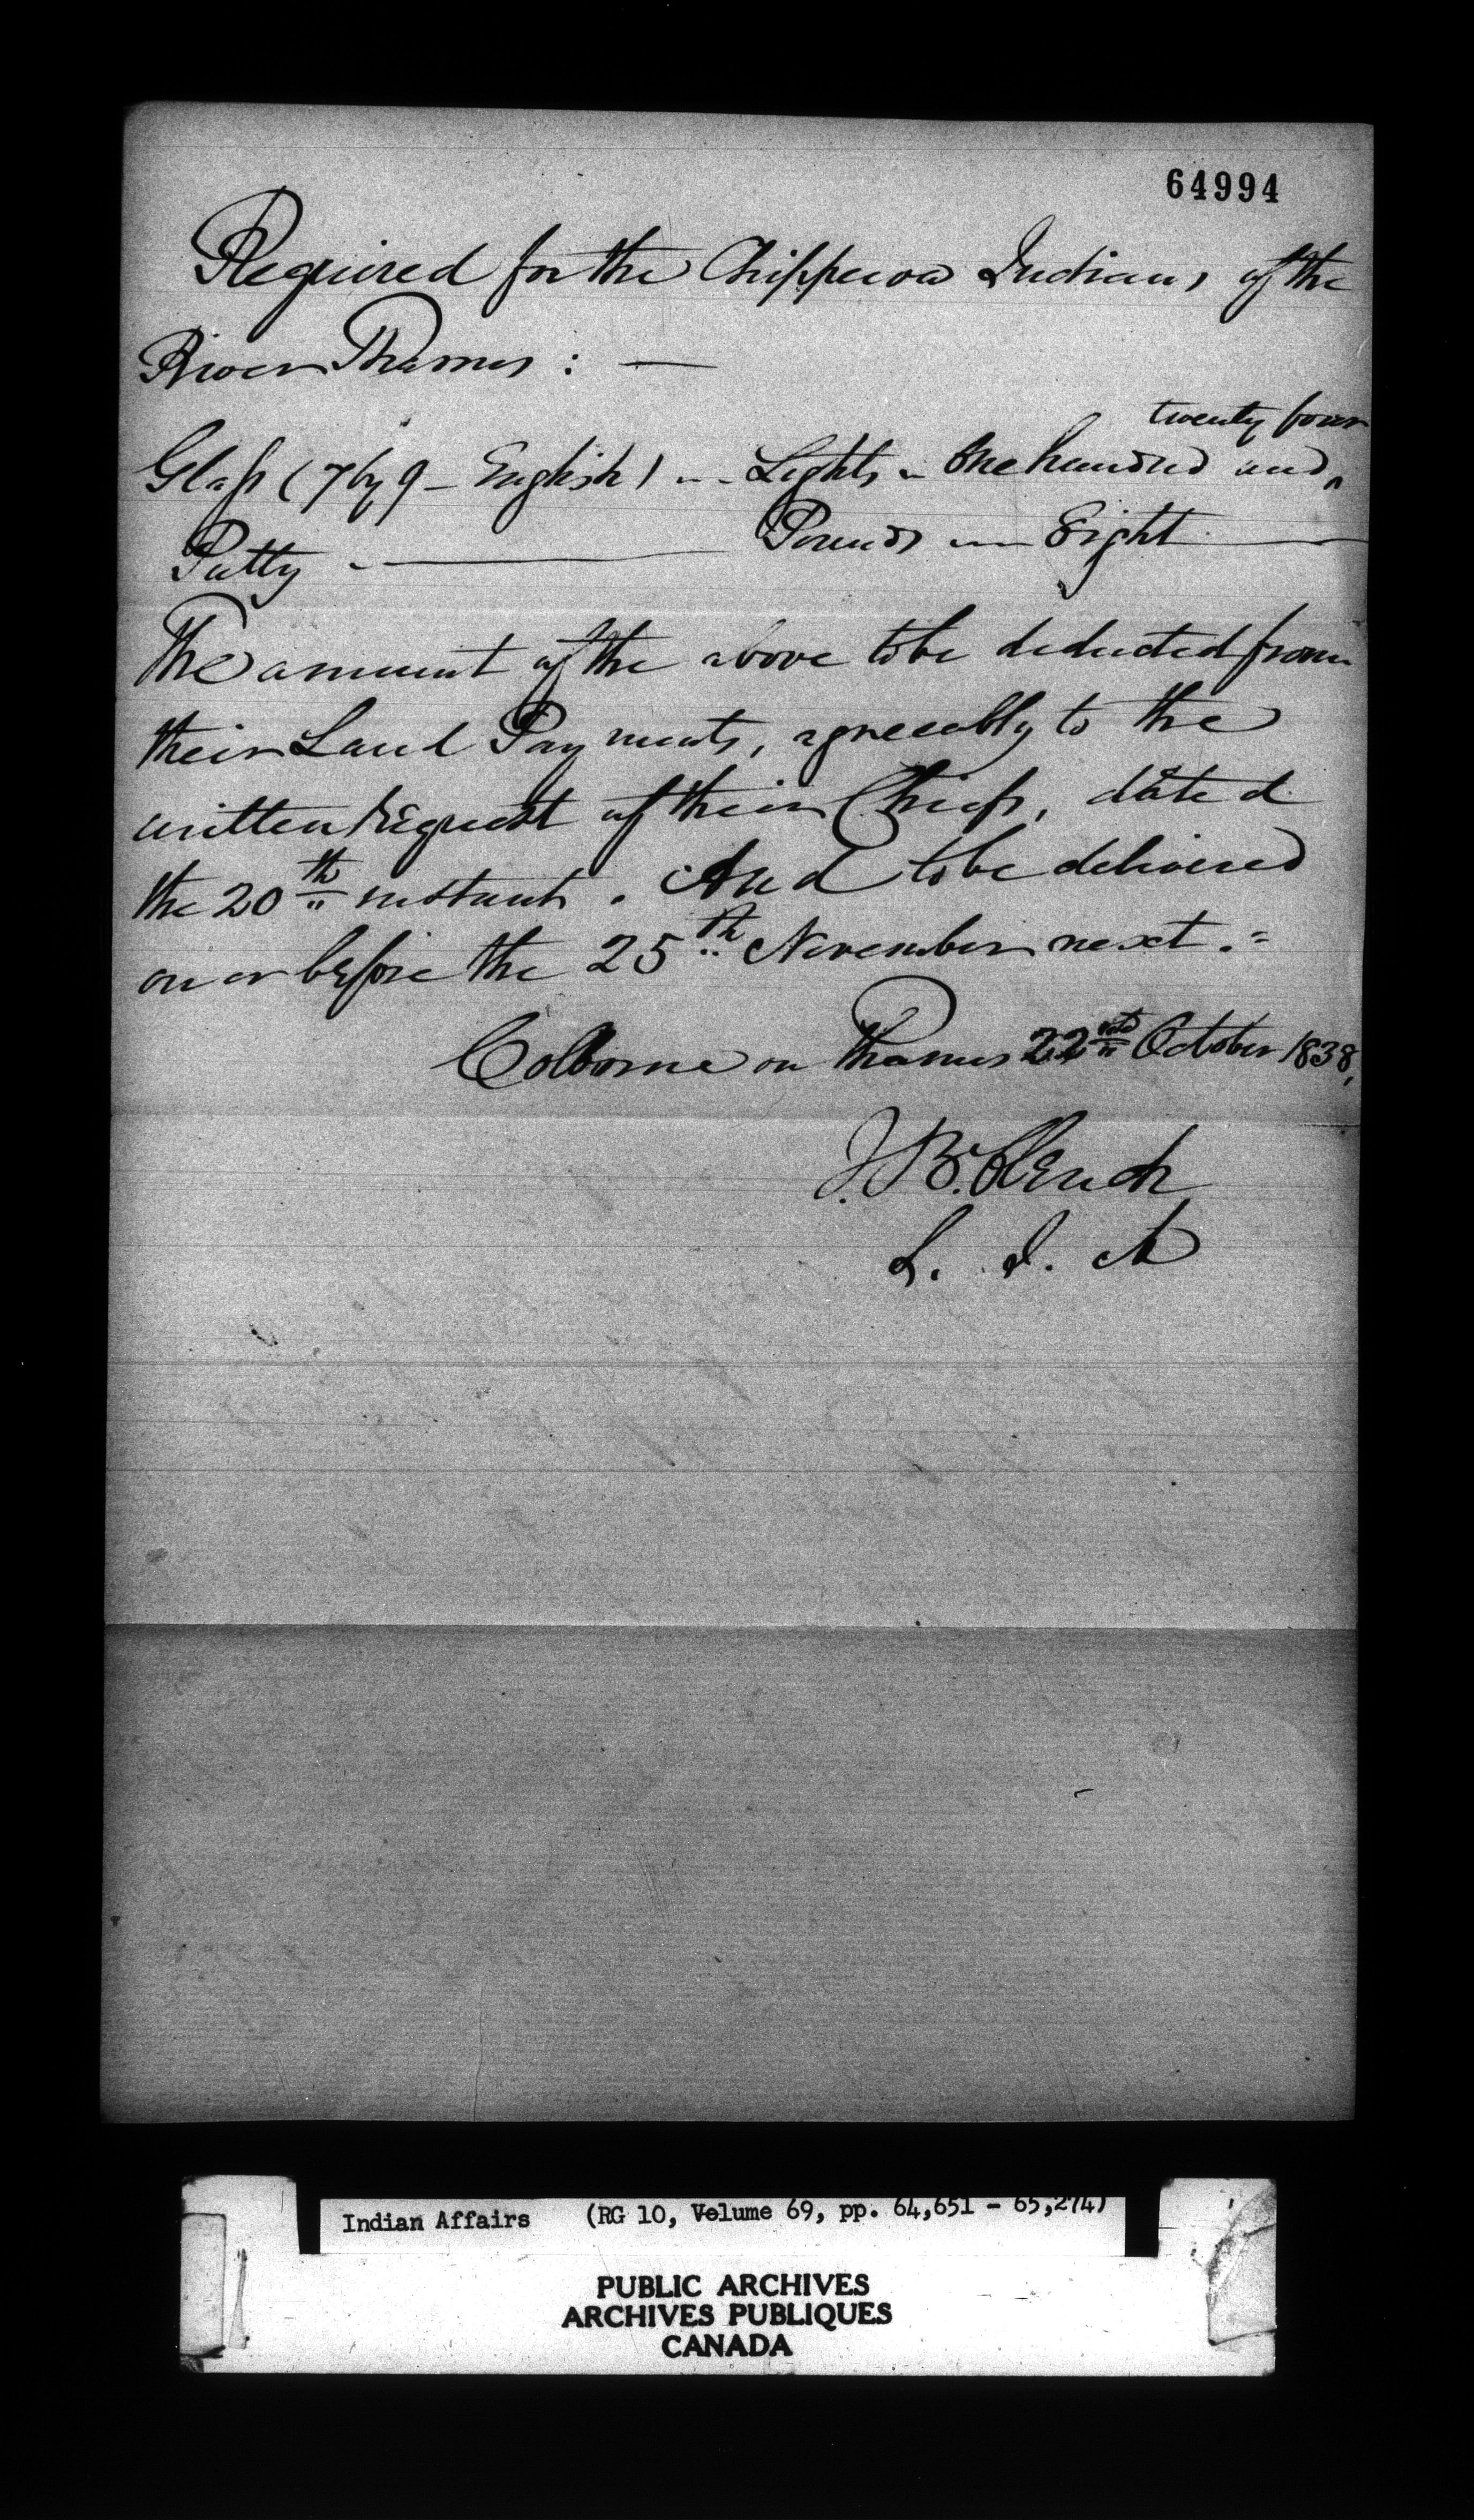 64994
Required for the Chippewa Indians of the
River Thames : —
twenty four
Glass (7 by 9 - English) .. Lights .. One hundred and ‸
Putty — Pounds — Eight —
The amount of the above to be deducted from
their Land Payments, agreeably to the
written request of their Chiefs, dated
the 20th instant. And to be delivered
on or before the 25th November next. =
Colborne on Thames 22nd October 1838,
J. B. Clench
S. I. A
Indian Affairs (RG 10, Volume 69, pp. 64,651 - 65,274)
PUBLIC ARCHIVES
ARCHIVES PUBLIQUES
CANADA